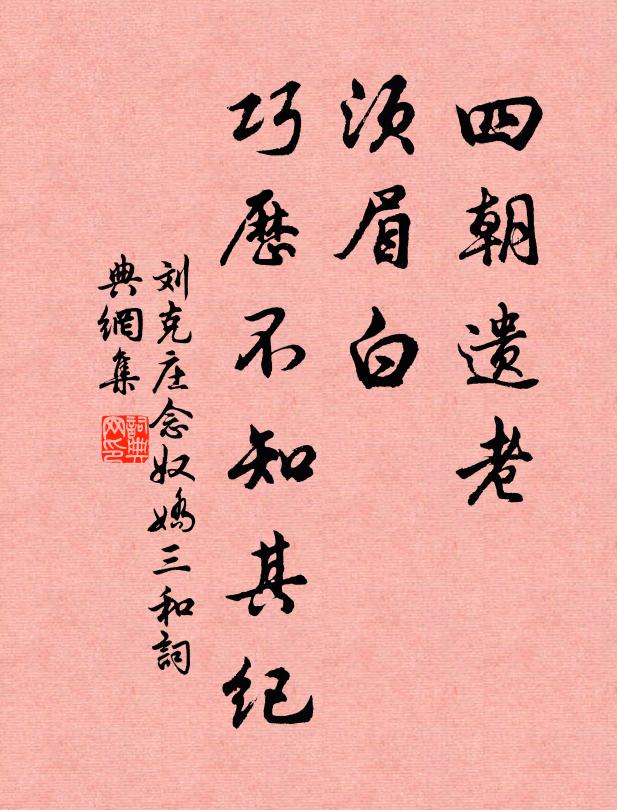 四朝遗老
须眉白
巧历不知其纪
刘克庄念奴娇三和词
典網集
詞典
网印